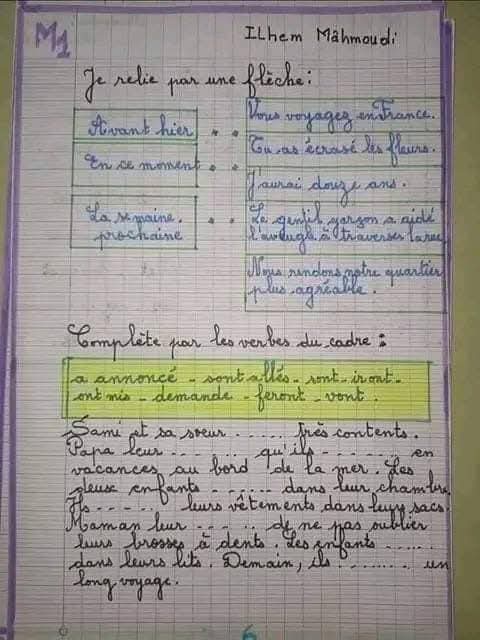 M1
ILhem Mâhmoudi
Je relie par une flèche:
Avant hier
En ce moment
La semaine.
prochaine
Vous voyagez en France.
Tu as écrasé les fleurs.
J'aurai douze ans.
Le gentil garçon a aidé
l'aveugle à traverser la rue
Nous rendons notre quartier
plus agréable.
Complète par les verbes du cadre:
a annoncé - sont allés - sont - iront -
ont mis - demande - feront - vont.
Sami et sa sœur ..... très contents.
Papa leur ...... qu'ils ...... en
vacances au bord de la mer. Les
deux enfants ...... dans leur chambre.
Ils ..... leurs vêtements dans leurs sacs.
Maman leur ..... de ne pas oublier
leurs brosses à dents. Les enfants .....
dans leurs lits. Demain, ils ....... un
long voyage.
6